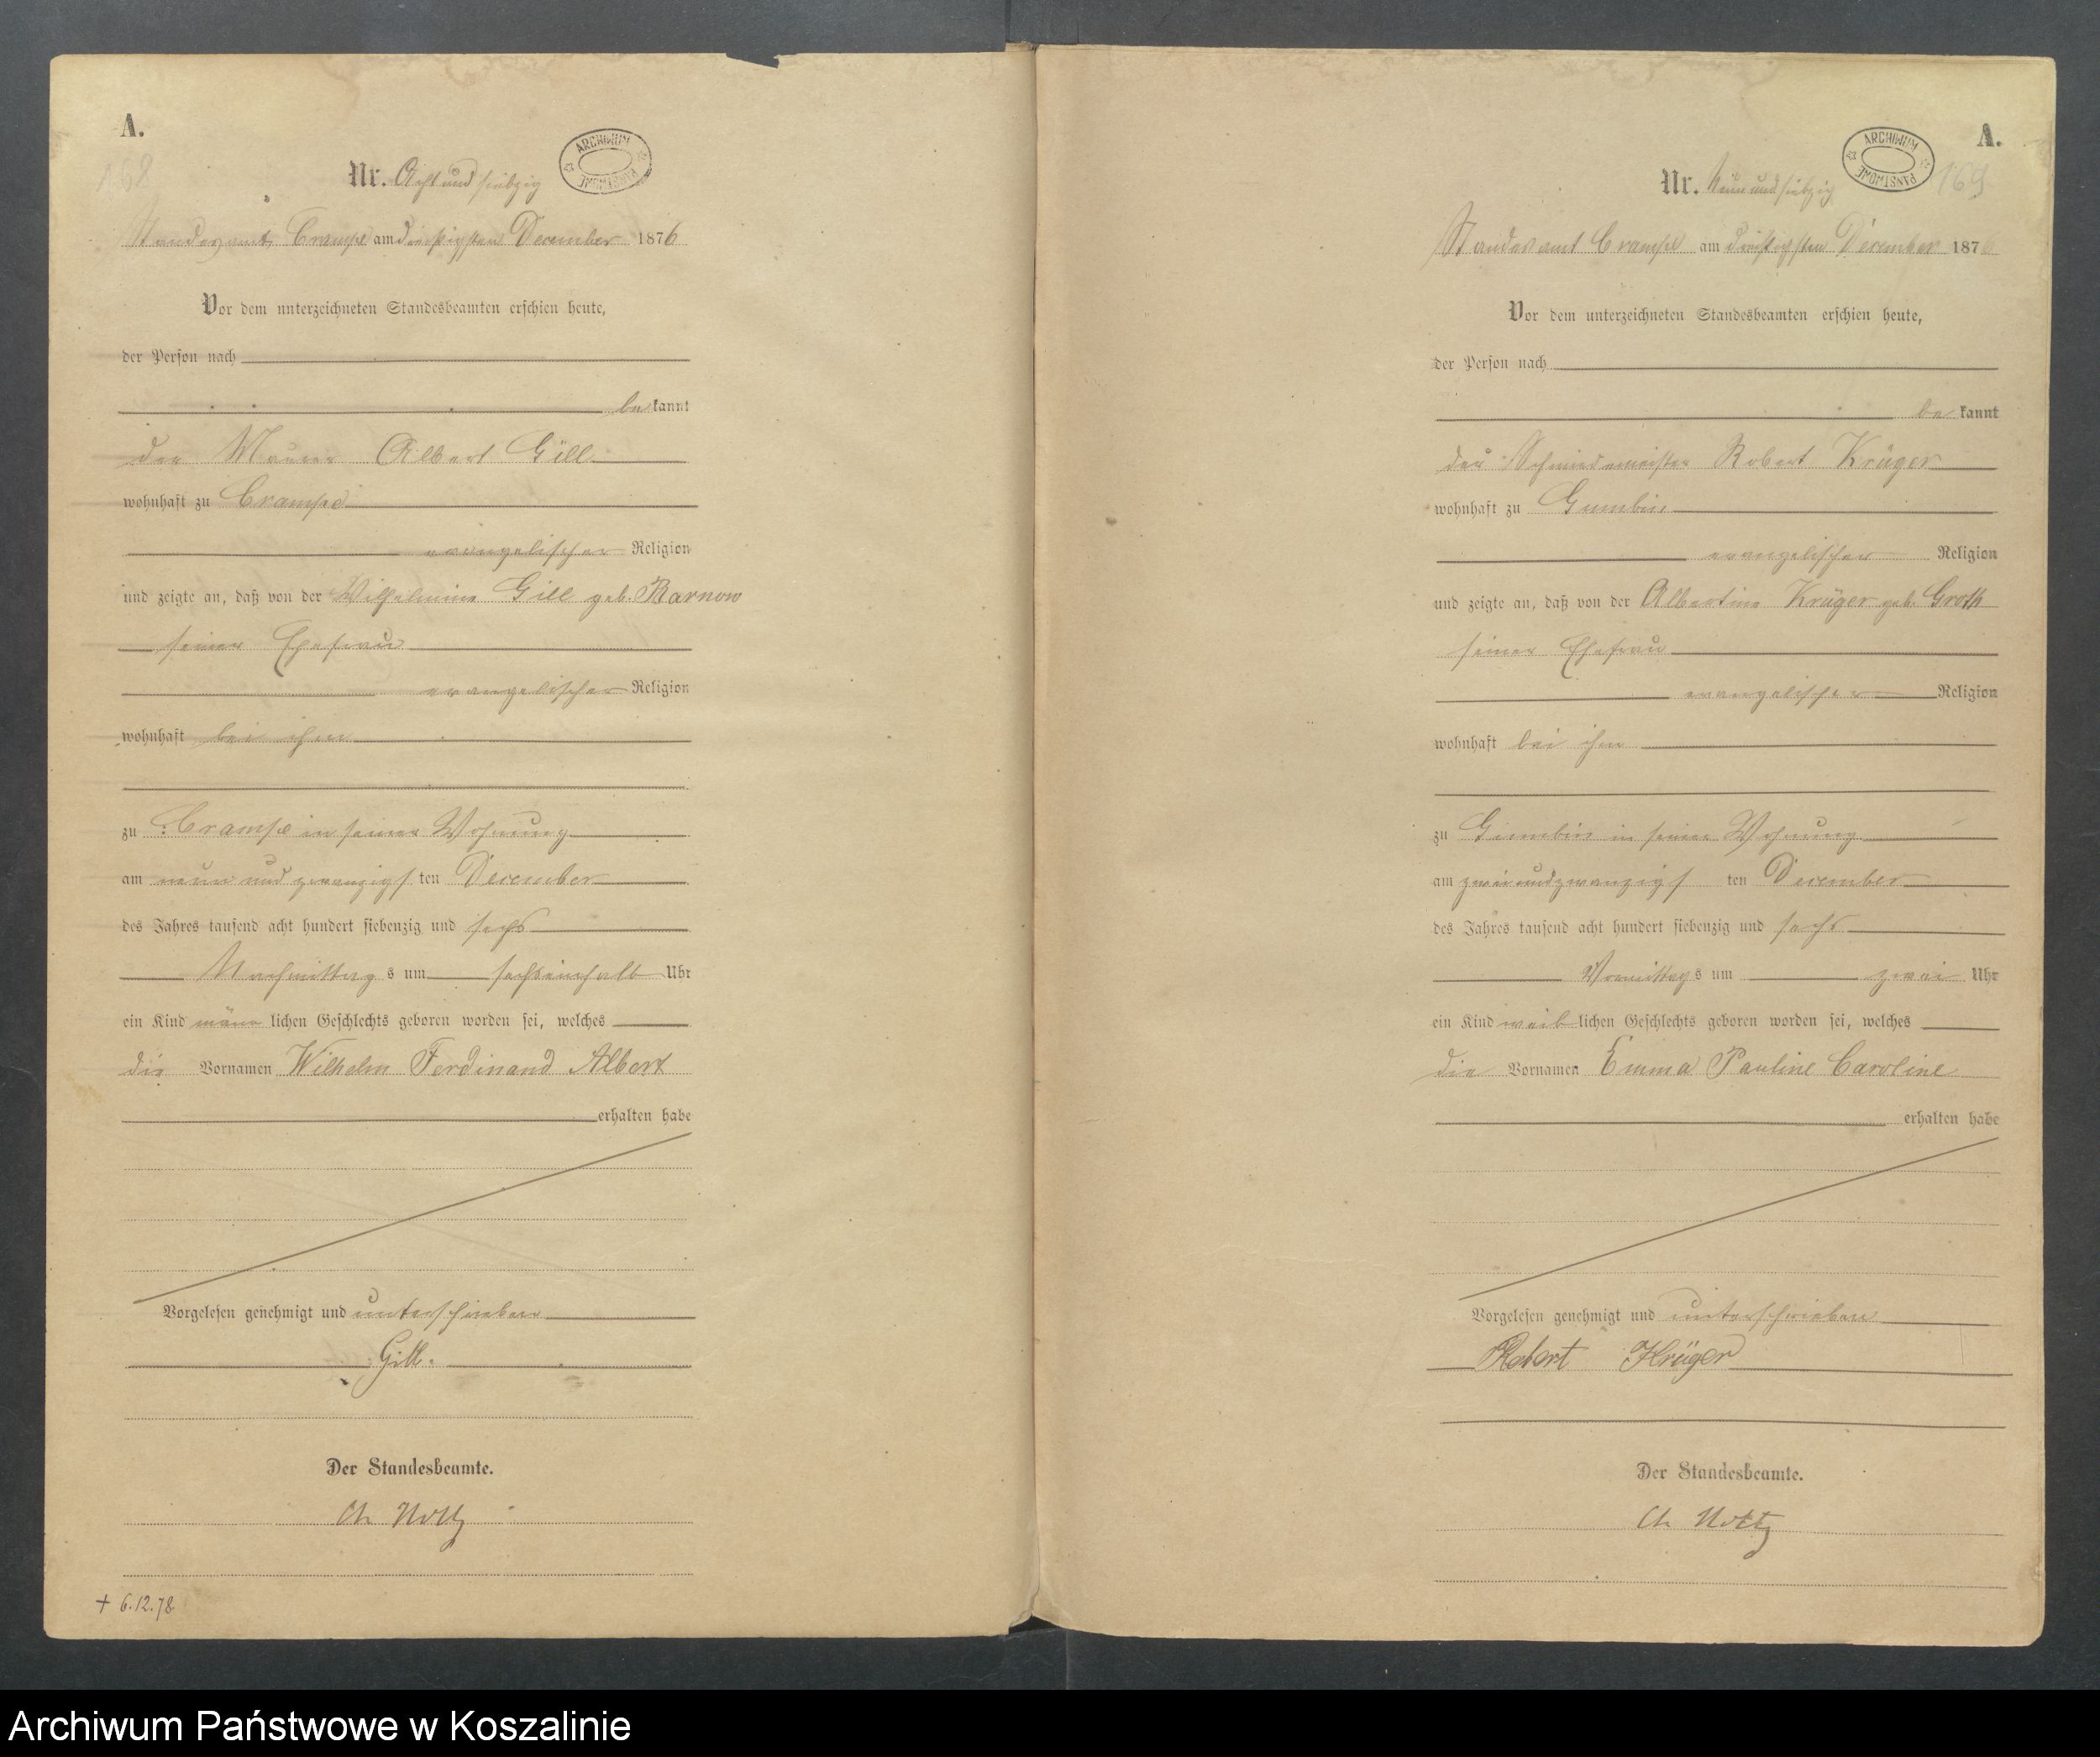 A.
168
Nr. Acht und siebzig
ARCHIWUM PAŃSTWOWE
Standesamt Crampe am dreißigsten December 1876
Vor dem unterzeichneten Standesbeamten erschien heute,
der Person nach
be kannt
der Maurer Albert Gill
wohnhaft zu Crampe
evangelischer Religion
und zeigte an, daß von der Wilhelmine Gill geb. Barnow
seiner Ehefrau
evangelischer Religion
wohnhaft bei ihm
zu Crampe in seiner Wohnung
am neun und zwanzigs ten December
des Jahres tausend acht hundert siebenzig und sechs
Nachmittag s um sechseinhalb Uhr
ein Kind männ lichen Geschlechts geboren worden sei, welches
die Vornamen Wilhelm Ferdinand Albert
erhalten habe
Vorgelesen genehmigt und unterschrieben
Gill.
Der Standesbeamte.
+ 6.12.78.
A.
169
Nr. Neun und siebzig
ARCHIWUM PAŃSTWOWE
Standesamt Crampe am dreißigsten December 1876
Vor dem unterzeichneten Standesbeamten erschien heute,
der Person nach
be kannt
der Schmiedemeister Robert Krüger
wohnhaft zu Gumbin
evangelischer Religion
und zeigte an, daß von der Albertine Krüger geb. Groth
seiner Ehefrau
evangelischer Religion
wohnhaft bei ihm
zu Gumbin in seiner Wohnung
am zweiundzwanzigs ten December
des Jahres tausend acht hundert siebenzig und sechs
Vormittag s um zwei Uhr
ein Kind weib lichen Geschlechts geboren worden sei, welches
die Vornamen Emma Pauline Caroline
erhalten habe
Vorgelesen genehmigt und unterschrieben
Robert Krüger
Der Standesbeamte.
Archiwum Państwowe w Koszalinie